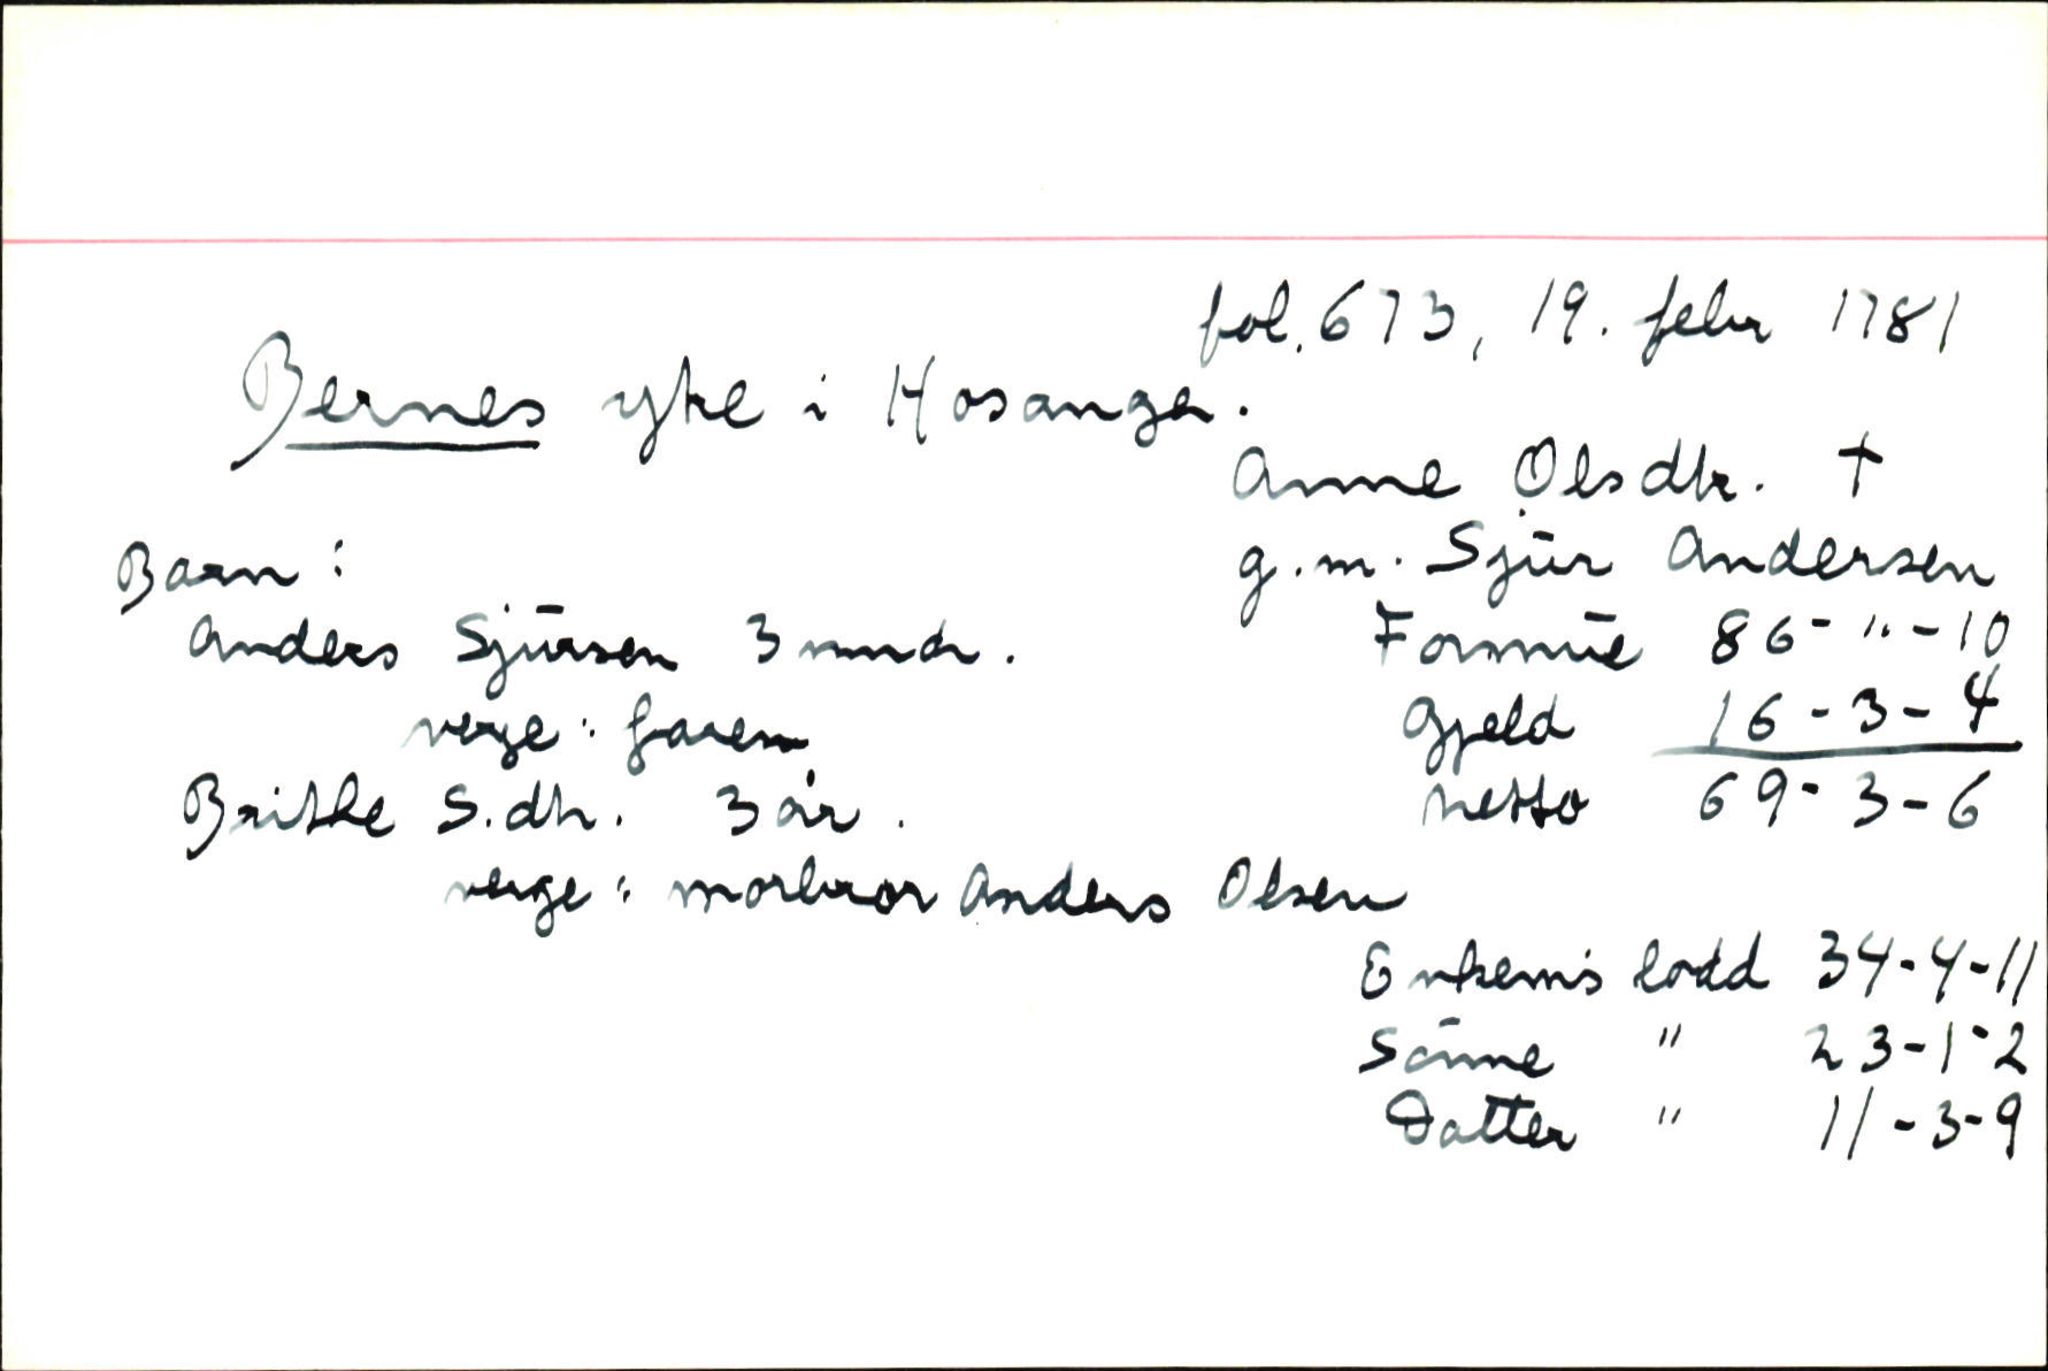 fol. 673, 19. febr 1781
Bernes ytre i Hosanger.
Anne Olsdtr. †
g. m. Sjur Andersen
Barn:
Anders Sjursen 3 mndr.
Formue 86-"-10
verge: faren
Gjeld 16-3-4
Brithe S.dtr. 3 år.
netto 69-3-6
verge: morbror Anders Olsen
Enkem's lodd 34-4-11
Sønne " 23-1-2
Datter " 11-3-9